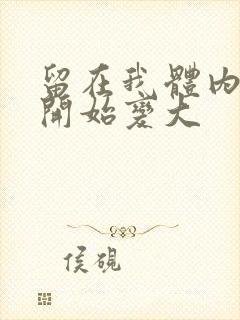 留在我體內
開始變大
侯硯